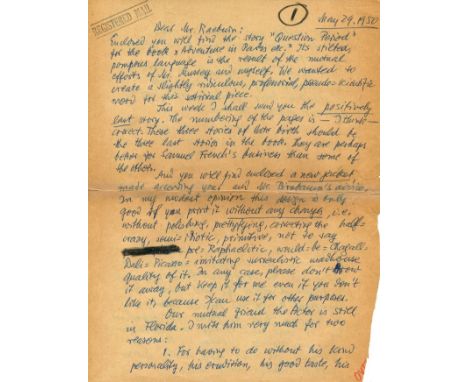 REGISTERED MAIL
1
May 29, 1950
Dear Mr. Raeburn:
Enclosed you will find the story "Question Period"
for the book "Adventure in Parks etc." Its stilted,
pompous language is the result of the mutual
efforts of Mr. and myself. We wanted to
create a slightly ridiculous, professorial, pseudo=scientific
word for this satirical piece.
This week I shall send you the positively
last story. The numbering of the pages is — I think —
correct. These three stories of late birth should be
the three last stories in the book. They are perhaps
better for Samuel French's business than some of
the others.
And you will find enclosed a new jacket
made according your and Mr. advice.
In my modest opinion this design is only
good if you print it without any changes, i.e.
without polishing, prettyfying, correcting the half=
crazy, semi=idiotic, primitive, not to say
pre=Raphaelitic, would=be=Chagall=
Dali=Picasso=imitating surrealistic madhouse
quality of it. In any case, please don't throw
it away, but keep it for me even if you don't
like it, because I can use it for other purposes.
Our mutual friend the Actor is still
in Florida. I miss him very much for two
reasons:
1. For having to do without his kind
personality, his erudition, his good taste, his